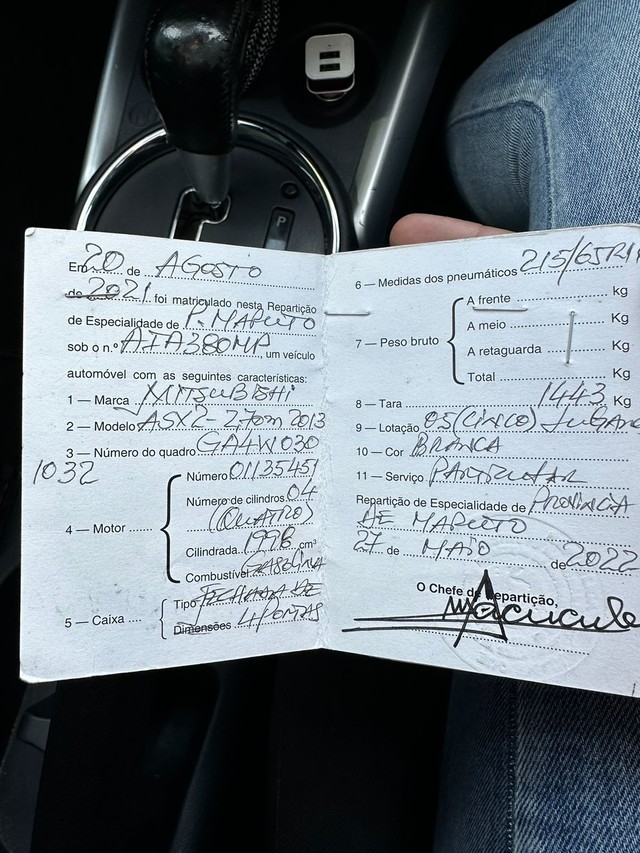 P
Em 20 de AGOSTO
de 2021 foi matriculado nesta Repartição
de Especialidade de P. MAPUTO
sob o n.º AIA380MP, um veículo
automóvel com as seguintes características:
1 — Marca MITSUBISHI
2 — Modelo ASX2 2013
3 — Número do quadro GA4W030
1032
4 — Motor
Número 01135451
Número de cilindros 04
(QUATRO)
Cilindrada 1998 cm³
Combustível GASOLINA
5 — Caixa
Tipo FECHADA DE
Dimensões 4 PORTAS
6 — Medidas dos pneumáticos 215/65R1
7 — Peso bruto
A frente Kg
A meio Kg
A retaguarda Kg
Total Kg
8 — Tara 1443 Kg
9 — Lotação 05 (CINCO) LUGARE
10 — Cor BRANCA
11 — Serviço PARTICULAR
Repartição de Especialidade de PROVINCIA
DE MAPUTO
27 de MAIO de 2022
O Chefe de Repartição,